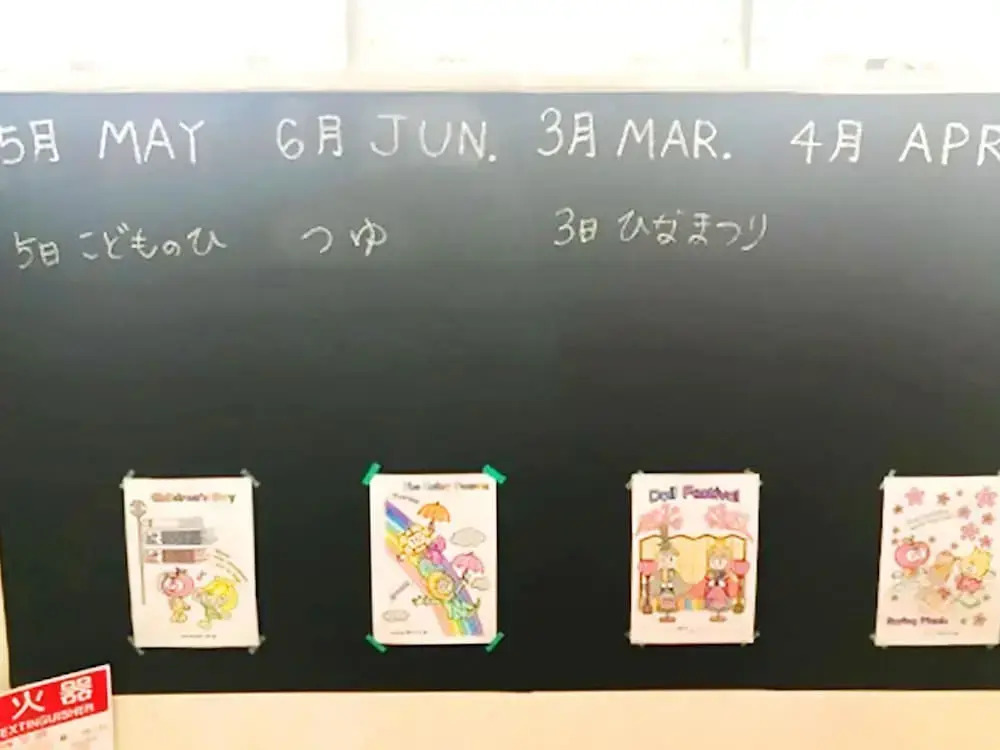 5月 MAY
6月 JUN.
3月 MAR.
4月 APR
5日 こどものひ
つゆ
3日 ひなまつり
Children's Day
The Rainy Season
Doll Festival
Spring Picnic
火器
EXTINGUISHER